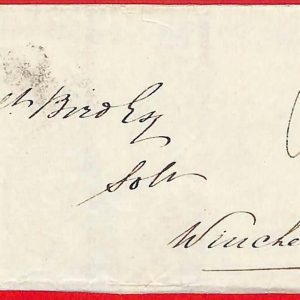 Bird Esq
Solr
Winche